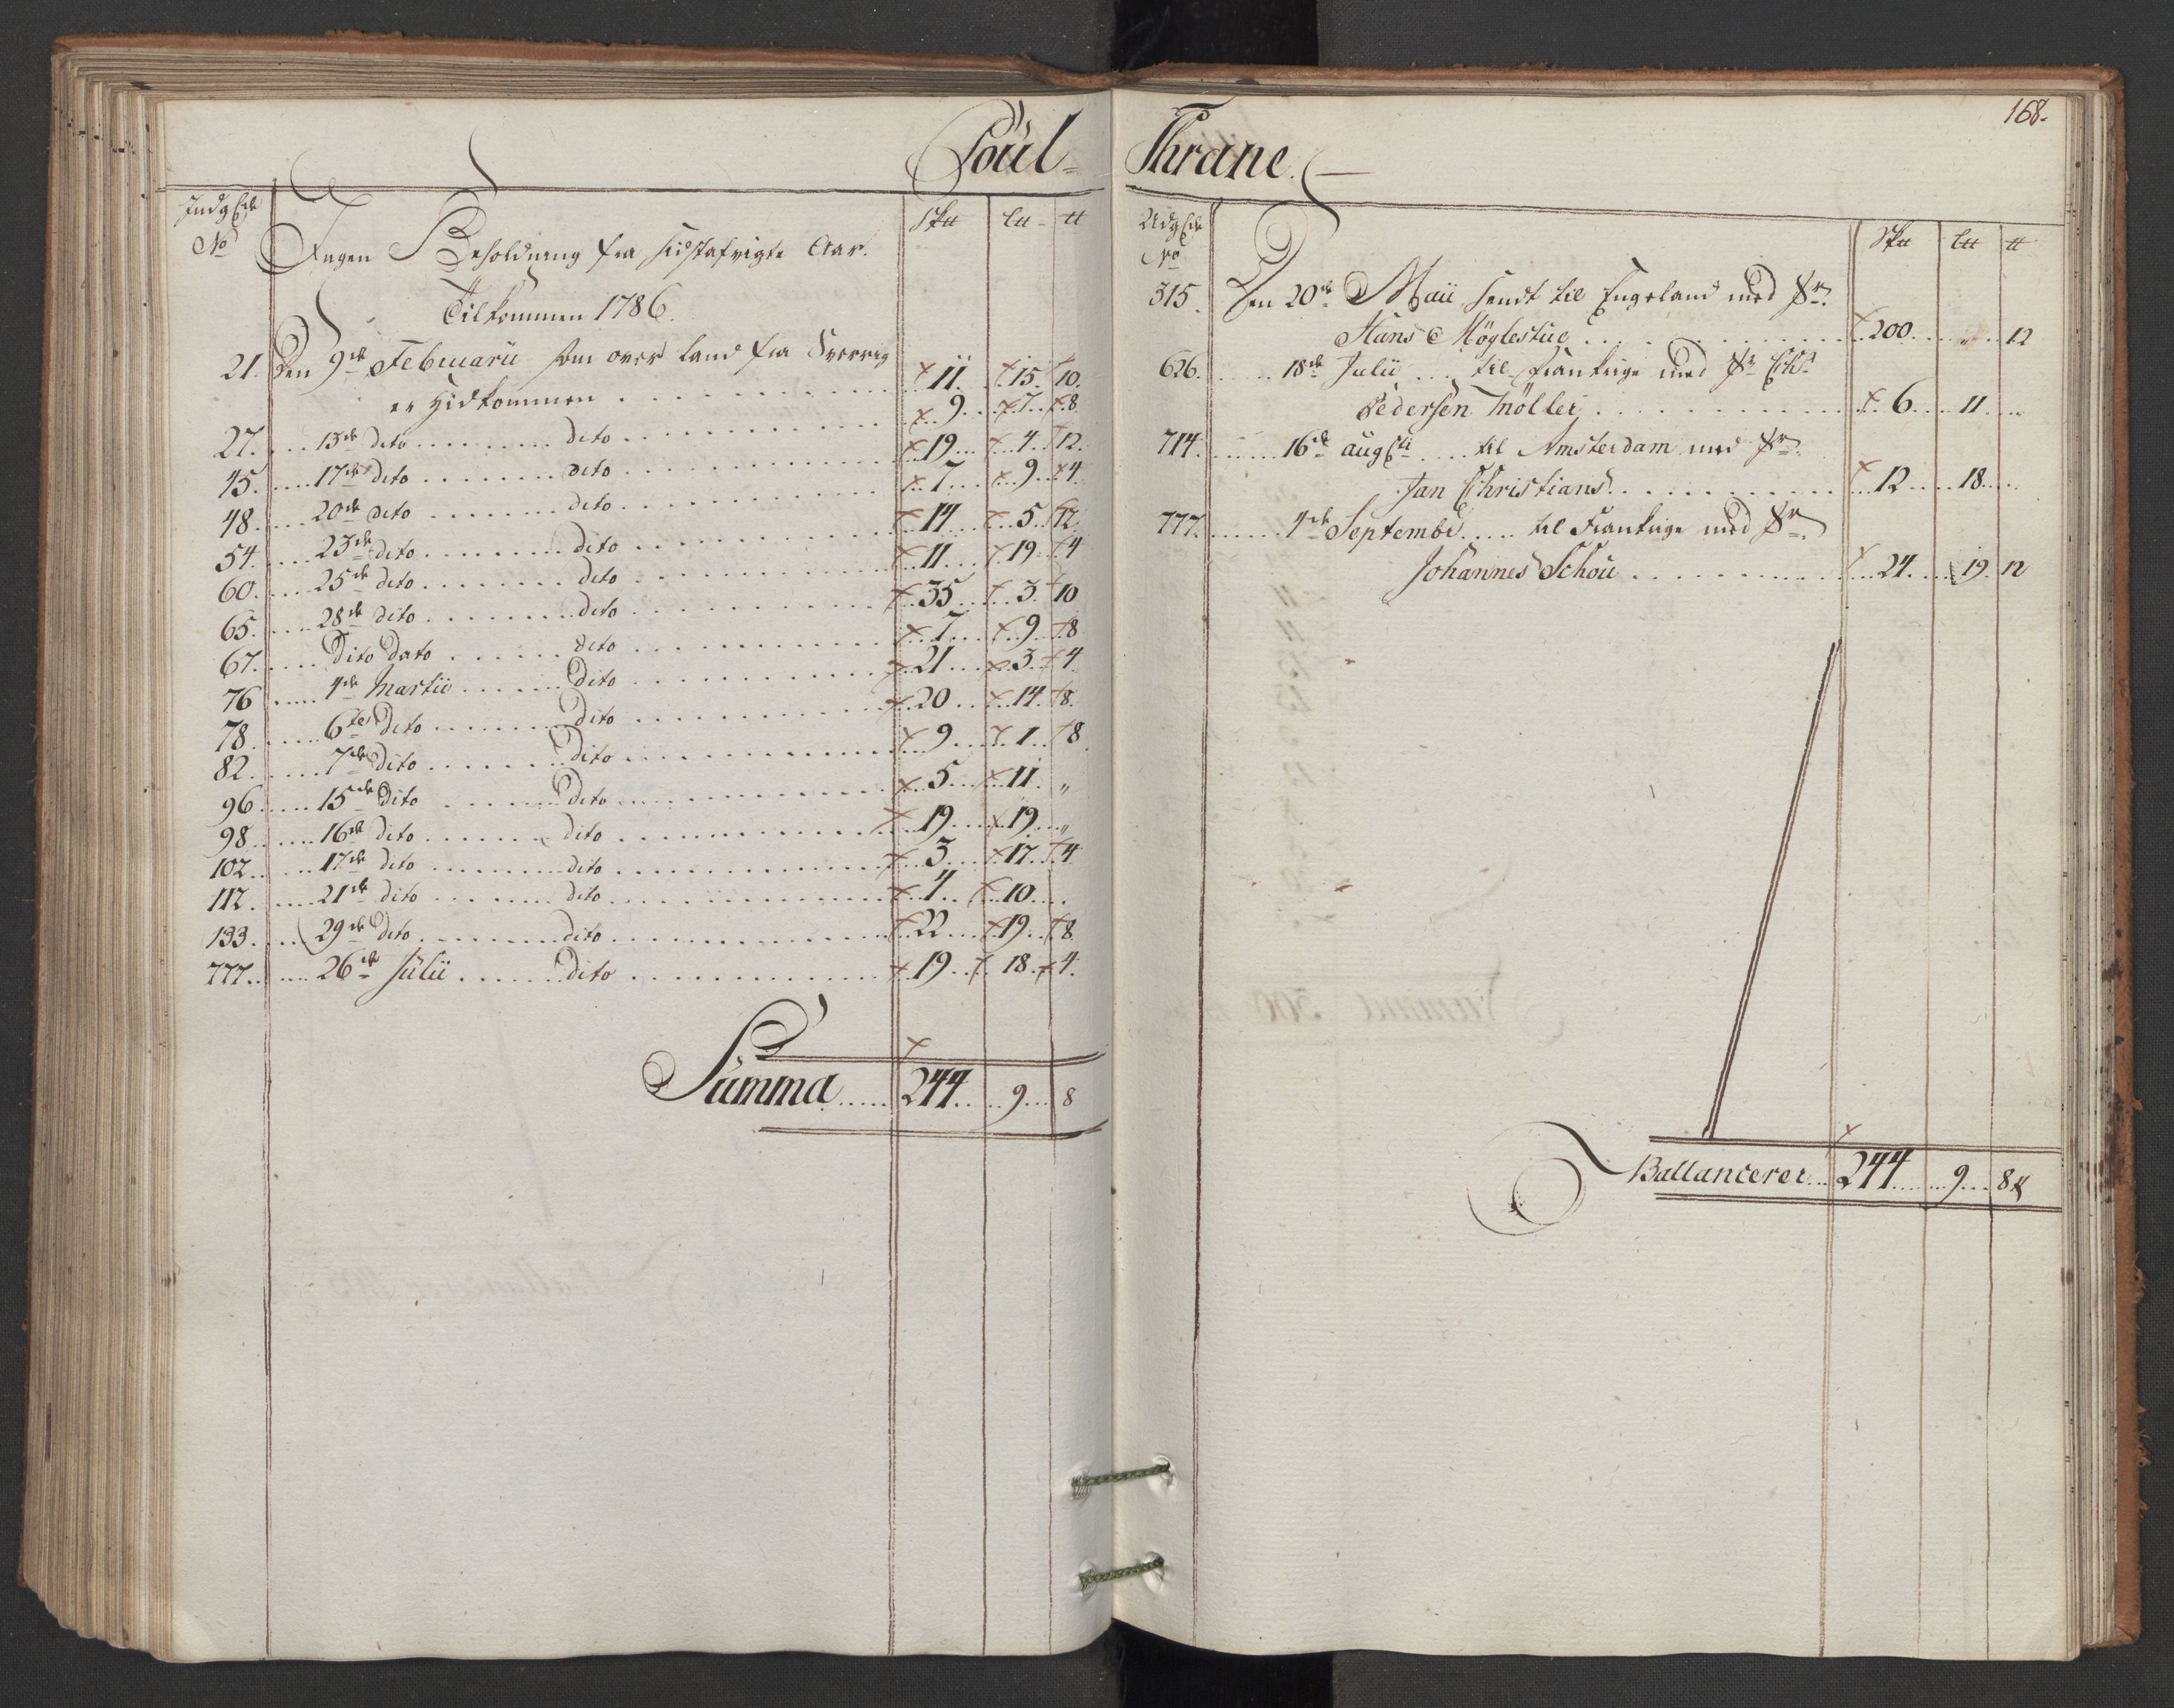 168.
Poul Thrane.
Indg Sedl No
S℔ L℔ ℔
Ingen Beholdning fra sidstafvigte Aar.
Tilkommen 1786.
21. Den 9de Februarii som over land fra Sverrig
er hidkommen 11. 15. 10.
27. 13de dito dito 9. 7. 8
45. 17de dito dito 19 4. 12.
48. 20de dito dito 7 9 4
54. 23de dito dito 14 5. 12
60. 25de dito dito 11 19 4
65. 28de dito dito 35 3. 10
67. Dito dato dito 7 9 8
76 4de Martii dito 21 3 4
78. 6te dito dito 20 14. 8.
82. 7de dito dito 9 1 8
96 15de dito dito 5 11. "
98 16de dito dito 19 19 "
102. 17de dito dito 3 17. 4
112. 21de dito dito 4 10
133. 29de dito dito 22 19 8
777. 26de Julii dito 19 18 4.
Summa 244 9 8
Udg Sedl No
S℔ L℔ ℔
315. Den 20de Maii sendt til Engeland med Sr.
Hans C Möglestue 200. " 12
626. 18de Julii til Frankrige med Sr Chr
Pedersen Möller 6 11 "
714. 16de augsti til Amsterdam med Sr.
Jan Christians 12 18
777. 4de Septembr. til Frankrige med Sr
Johannes Schou 24. 19. 12
Ballancerer 244 9 8